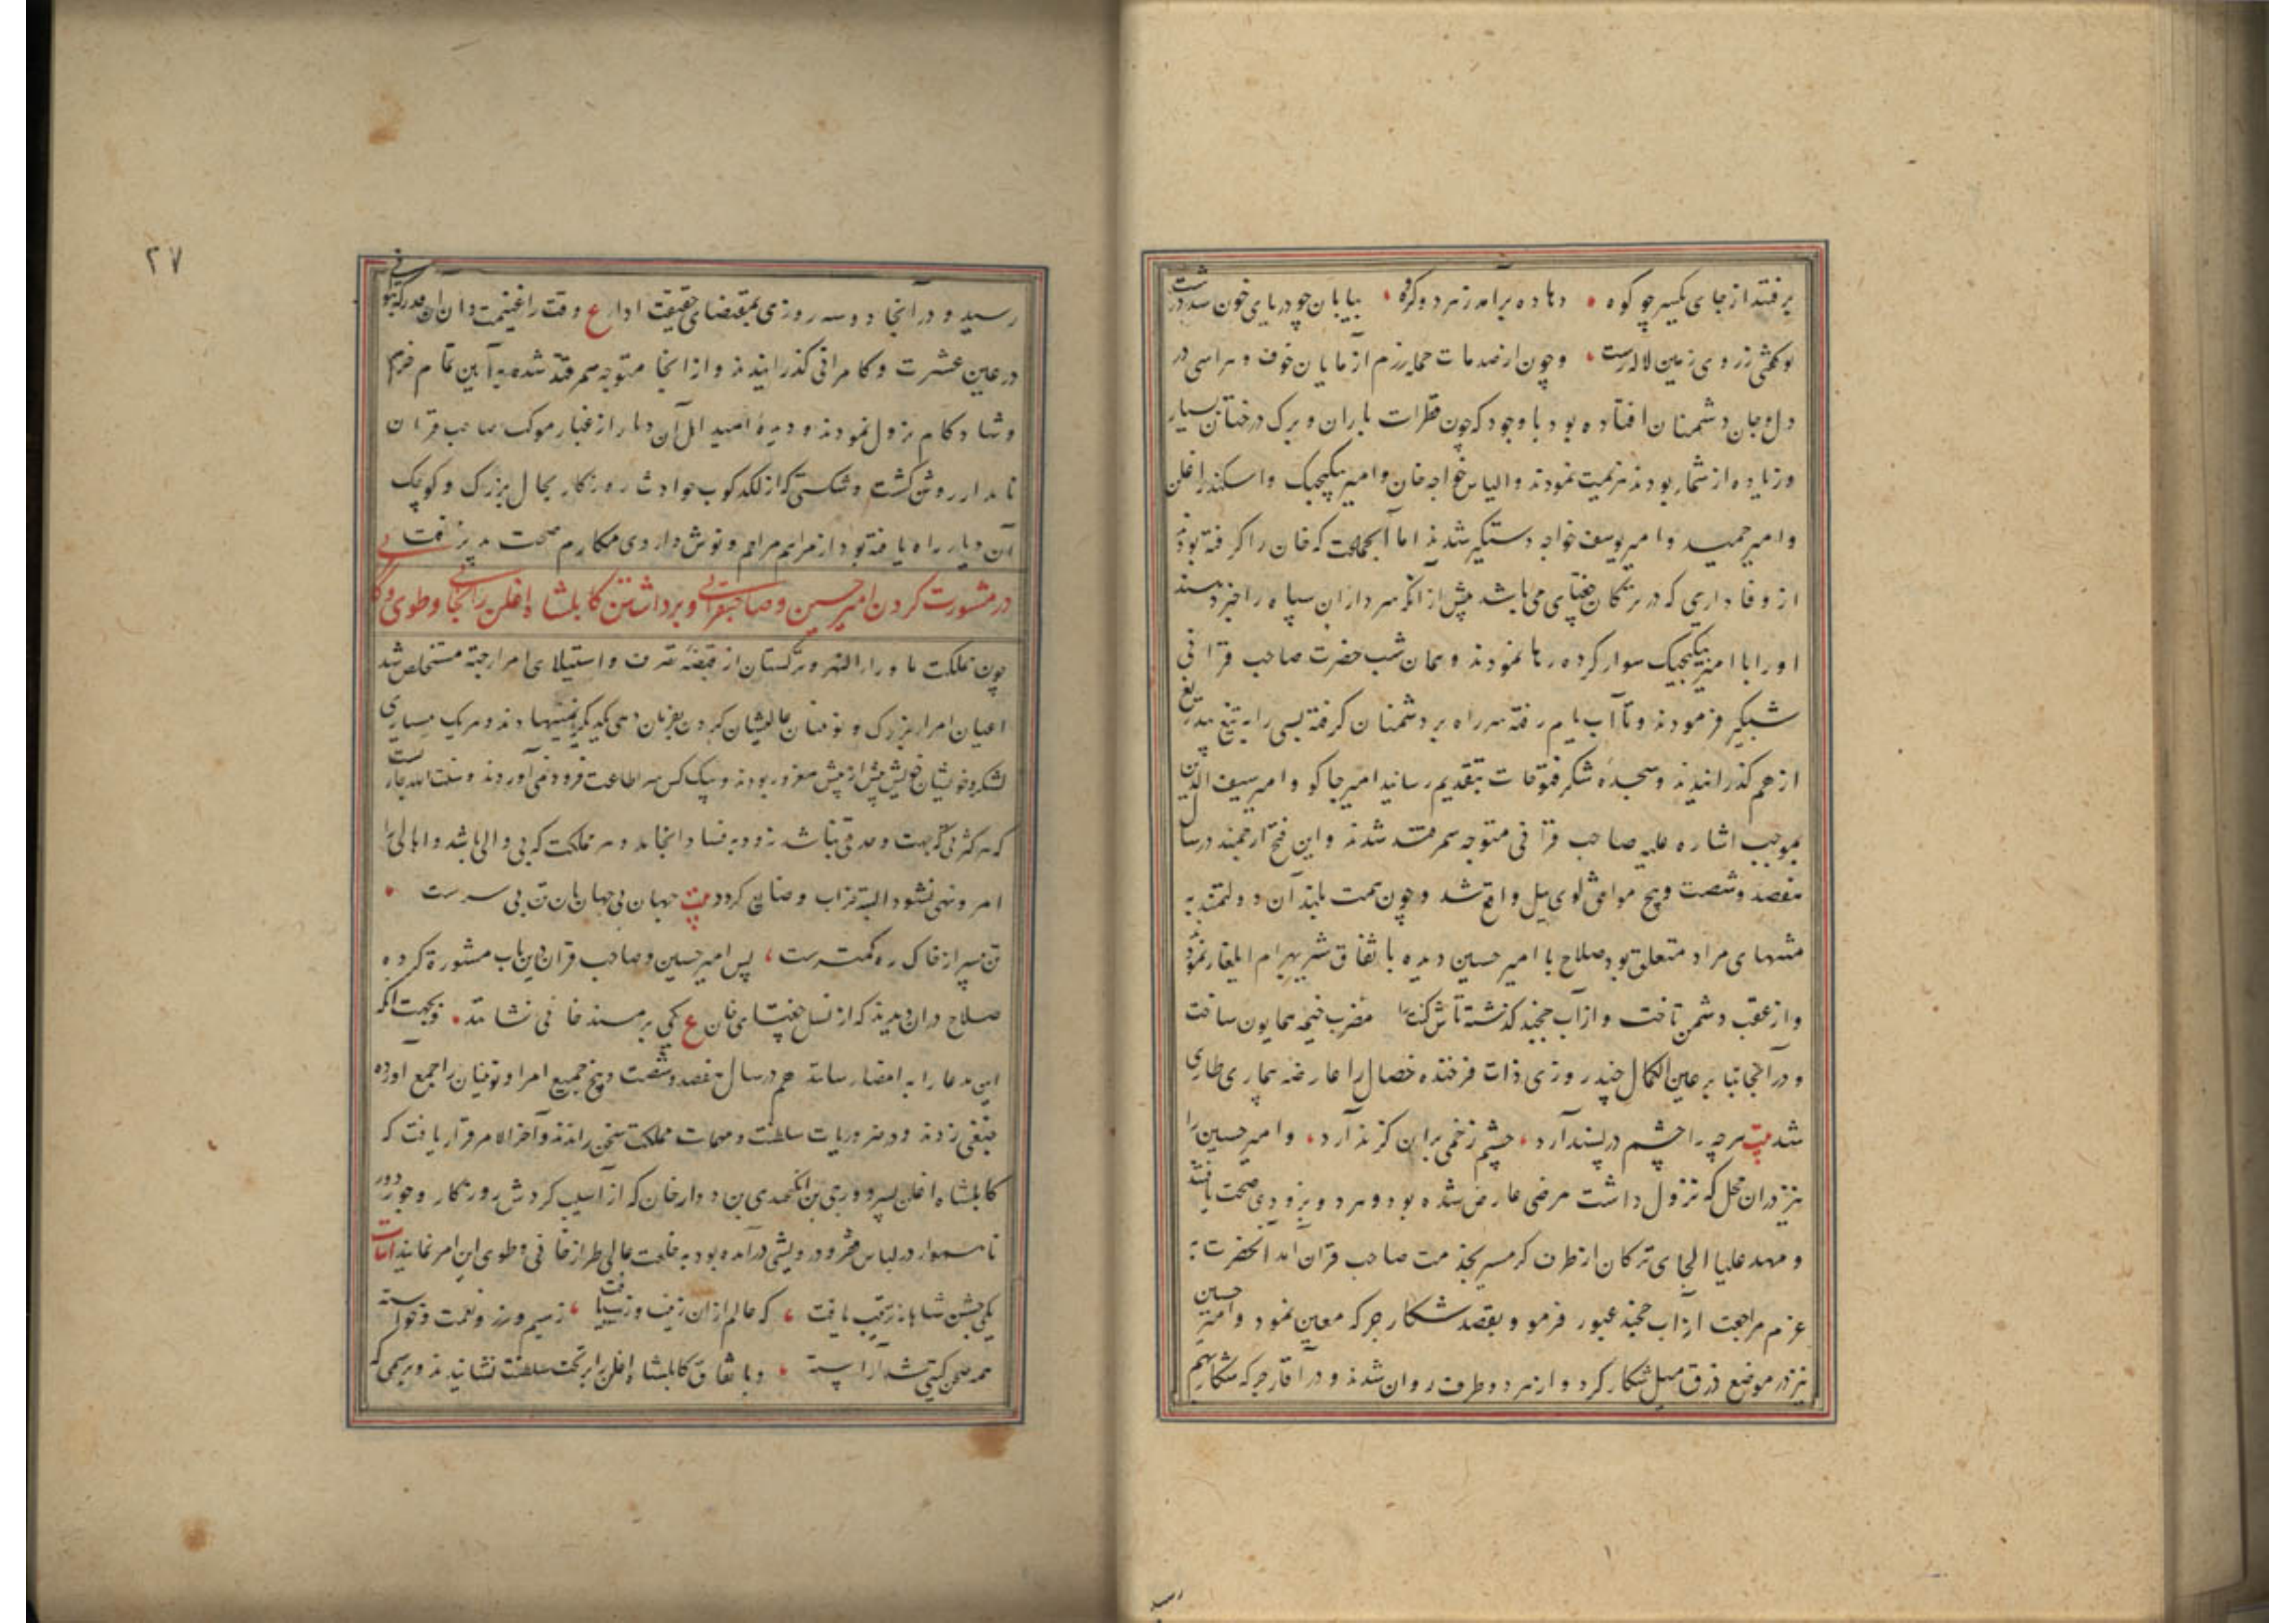 برفتند از جای یکسر چو کوه دهاده برآمد ز هر دو گروه بیابان چو دریای خون شد درست
تو گفتی ز روی زمین لاله رست وچون از صدمات حمله رزم آزمایان خوف و هراسی در
دل و جان دشمنان افتاده بود با وجود که چون قطرات باران و برک درختان بسیار
و زیاده از شمار بودند هزیمت نمودند و الیاس خواجه خان و امیر بیکیجک و اسکندر اغلن
و امیر حمید و امیر یوسف خواجه دستگیر شدند اما آنجماعت که خان را گرفته بودند
از وفاداری که در ترکان جغتای می باشد پیش از آنکه سرداران سپاه را خبر دهند
او را با امیر بیکیجک سوار کرده رها نمودند و همان شب حضرت صاحب قرانی
شبگیر فرمودند و تا آب یام رفته سر راه بر دشمنان گرفته بسی را به تیغ بیدریغ
از هم گذرانیدند و سجده شکر فتوحات بتقدیم رسانید امیر جاکو و امیر سیف الدین
بموجب اشاره علیه صاحب قرانی متوجه سمرقند شدند و این فتح ارجمند در سال
هفصد و شصت و پنج موافق لوی ییل واقع شد و چون همت بلند آن دولتمند به
متعلق بود صلاح با امیر حسین دیده باتفاق شیر بهرام ایلغار نموده
و از عقب دشمن تافت و از آب خجند گذشته تاشکند را مضرب خیمه همایون ساخت
و در آنجا بنابر عین الکمال چند روزی ذات فرخنده خصال را عارضه بیماری طاری
شد بیت هر چه را چشم در پسند آرد چشم زخمی بر آن گزند آرد و امیر حسین را
نیز در آن محل که نزول داشت مرضی عارض شده بود و هر دو بزودی صحت یافتند
و مهد علیا الجای ترکان از طرف گرمسیر بخدمت صاحب قران آمد آنحضرت به
عزم مراجعت از آب خجند عبور فرمود و بقصد شکار جرکه معین نمود و امیر حسین
نیز در موضع شکار کرد و از هر دو طرف روان شدند و در آقار جرکه شکار بهم
رسید
۲۷
رسید و در آنجا دو سه روزی بمقتضای حقیقت ادا ع وقت را غنیمت دان آن قدر که بتوانی
در عین عشرت و کامرانی گذرانیدند و از آنجا متوجه سمرقند شده به آیین تمام خرم
و شادکام نزول نمودند و دیده امید اهل آن دیار از غبار موکب صاحب قران
نامدار روشن گشت و شکستی که از لکدکوب حوادث روزگار بحال بزرک و کوچک
آن دیار راه یافته بود از مراهم مراحم و نوش داروی مکارم صحت پذیرفت
در مشورت کردن امیر حسین و صاحبقرانی و برداشتن کابلشاه اغلن را بخانی و طوی
چون مملکت ماوراءالنهر و ترکستان از قبضه تصرف و استیلای امراء جته مستخلص شد
اعیان امرای بزرک و نوئینان عالیشان گردن بفرمان دهی یکدیگر نمینهادند و هر یک ببسیاری
لشکر و خویشان خویش بیش از پیش مغرور بودند و هیچ کس سر اطاعت فرود نمی آوردند و سنت الله جاریست
که هر کثرتی که جهت وحدتی نباشد زود به فساد انجامد و هر مملکت که بی والی باشد و اهالی را
امر و نهی نشود البته خراب و ضایع گردد بیت جهان بی جهانبان تن بی سرست
تن بیسر از خاک ره کمترست پس امیر حسین و صاحب قران درین باب مشورة کرده
صلاح در آن دیدند که از نسل جغتای خان ع یکی بر مسند خانی نشانند و بجهت آنکه
این مدعا را به امضا رسانند هم در سال هفصد و شصت و پنج جمیع امرا و نوئینان را جمع آورده
جنقی زدند و در ضروریات سلطنت و مهمات مملکت سخن راندند و آخر الامر قرار یافت که
کابلشاه اغلن پسر دورجی بن ایلچیکدای بن دوا خان که از آسیب گردش روزگار و جور دور
ناهموار در لباس فقر و درویشی درآمده بود به خلعت عالی طراز خانی و طوی این امر نمایند ابیات
یکی جشن شاهانه ترتیب یافت که عالم از آن زینت و زیب یافت ز سیم و زر و نعمت و خواسته
همه صحن گیتی شد آراسته و باتفاق کابلشاه اغلن را بر تخت سلطنت نشاندند و برسمی که